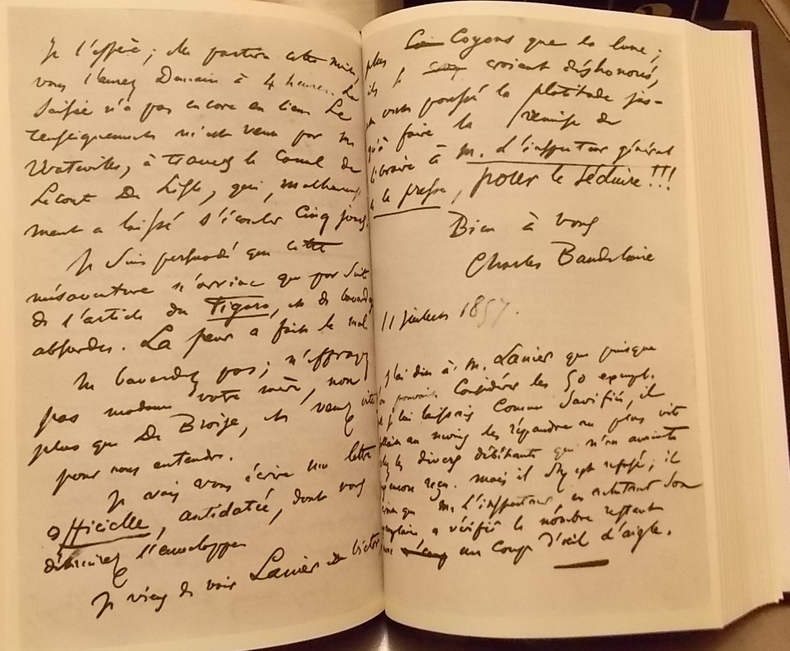 vous l'aurez Demain à 4 heures. La
Saisie n'a pas encore eu lieu. Le
renseignement m'est venu par M.
Watteville, à travers le canal de
Leconte De Lisle, qui, malheureuse
ment a laissé s'écouler Cinq jours.
Je suis persuadé que cette
mésaventure n'arrive que par suite
de l'article du Figaro, et de bavardages
absurdes. La peur a fait le mal
Ne bavardez pas; n'effrayez
pas madame votre mère, non
plus que De Broise, et venez vite
pour nous entendre.
Je vais vous écrire une lettre
officielle, antidatée, dont vous
détruirez l'enveloppe
Je viens de voir Lanier De Victor
Coyons que la lune;
ils se croient déshonorés,
et ont poussé la platitude jus-
qu'à faire la remise de
libraire à M. L'inspecteur général
de la presse, pour le séduire!!!
Bien à vous
Charles Baudelaire
11 juillet 1857.
J'ai dit à M. Lanier que puisque
pouvait considérer les 50 exempl.
laissais comme sacrifiés, il
fallait au moins les répandre au plus vite
chez les divers débitants qui n'en avaient
encore reçu. mais il s'y est refusé; il
que M. l'inspecteur, en achetant son
exemplaire a vérifié le nombre restant
avec un coup d'œil d'aigle.